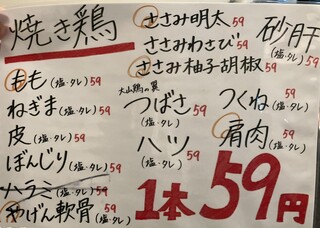 焼き鶏
もも(塩・タレ)59
ねぎま(塩・タレ)59
皮(塩・タレ)59
ぼんじり(塩・タレ)59
ハラミ(塩・タレ)59
やげん軟骨(塩・タレ)59
ささみ明太59
ささみわさび59
ささみ柚子胡椒59
大山鶏の翼
つばさ59
(塩・タレ)
ハツ59
(塩・タレ)
砂肝
59
つくね59
(塩・タレ)
肩肉59
(塩・タレ)
1本59円